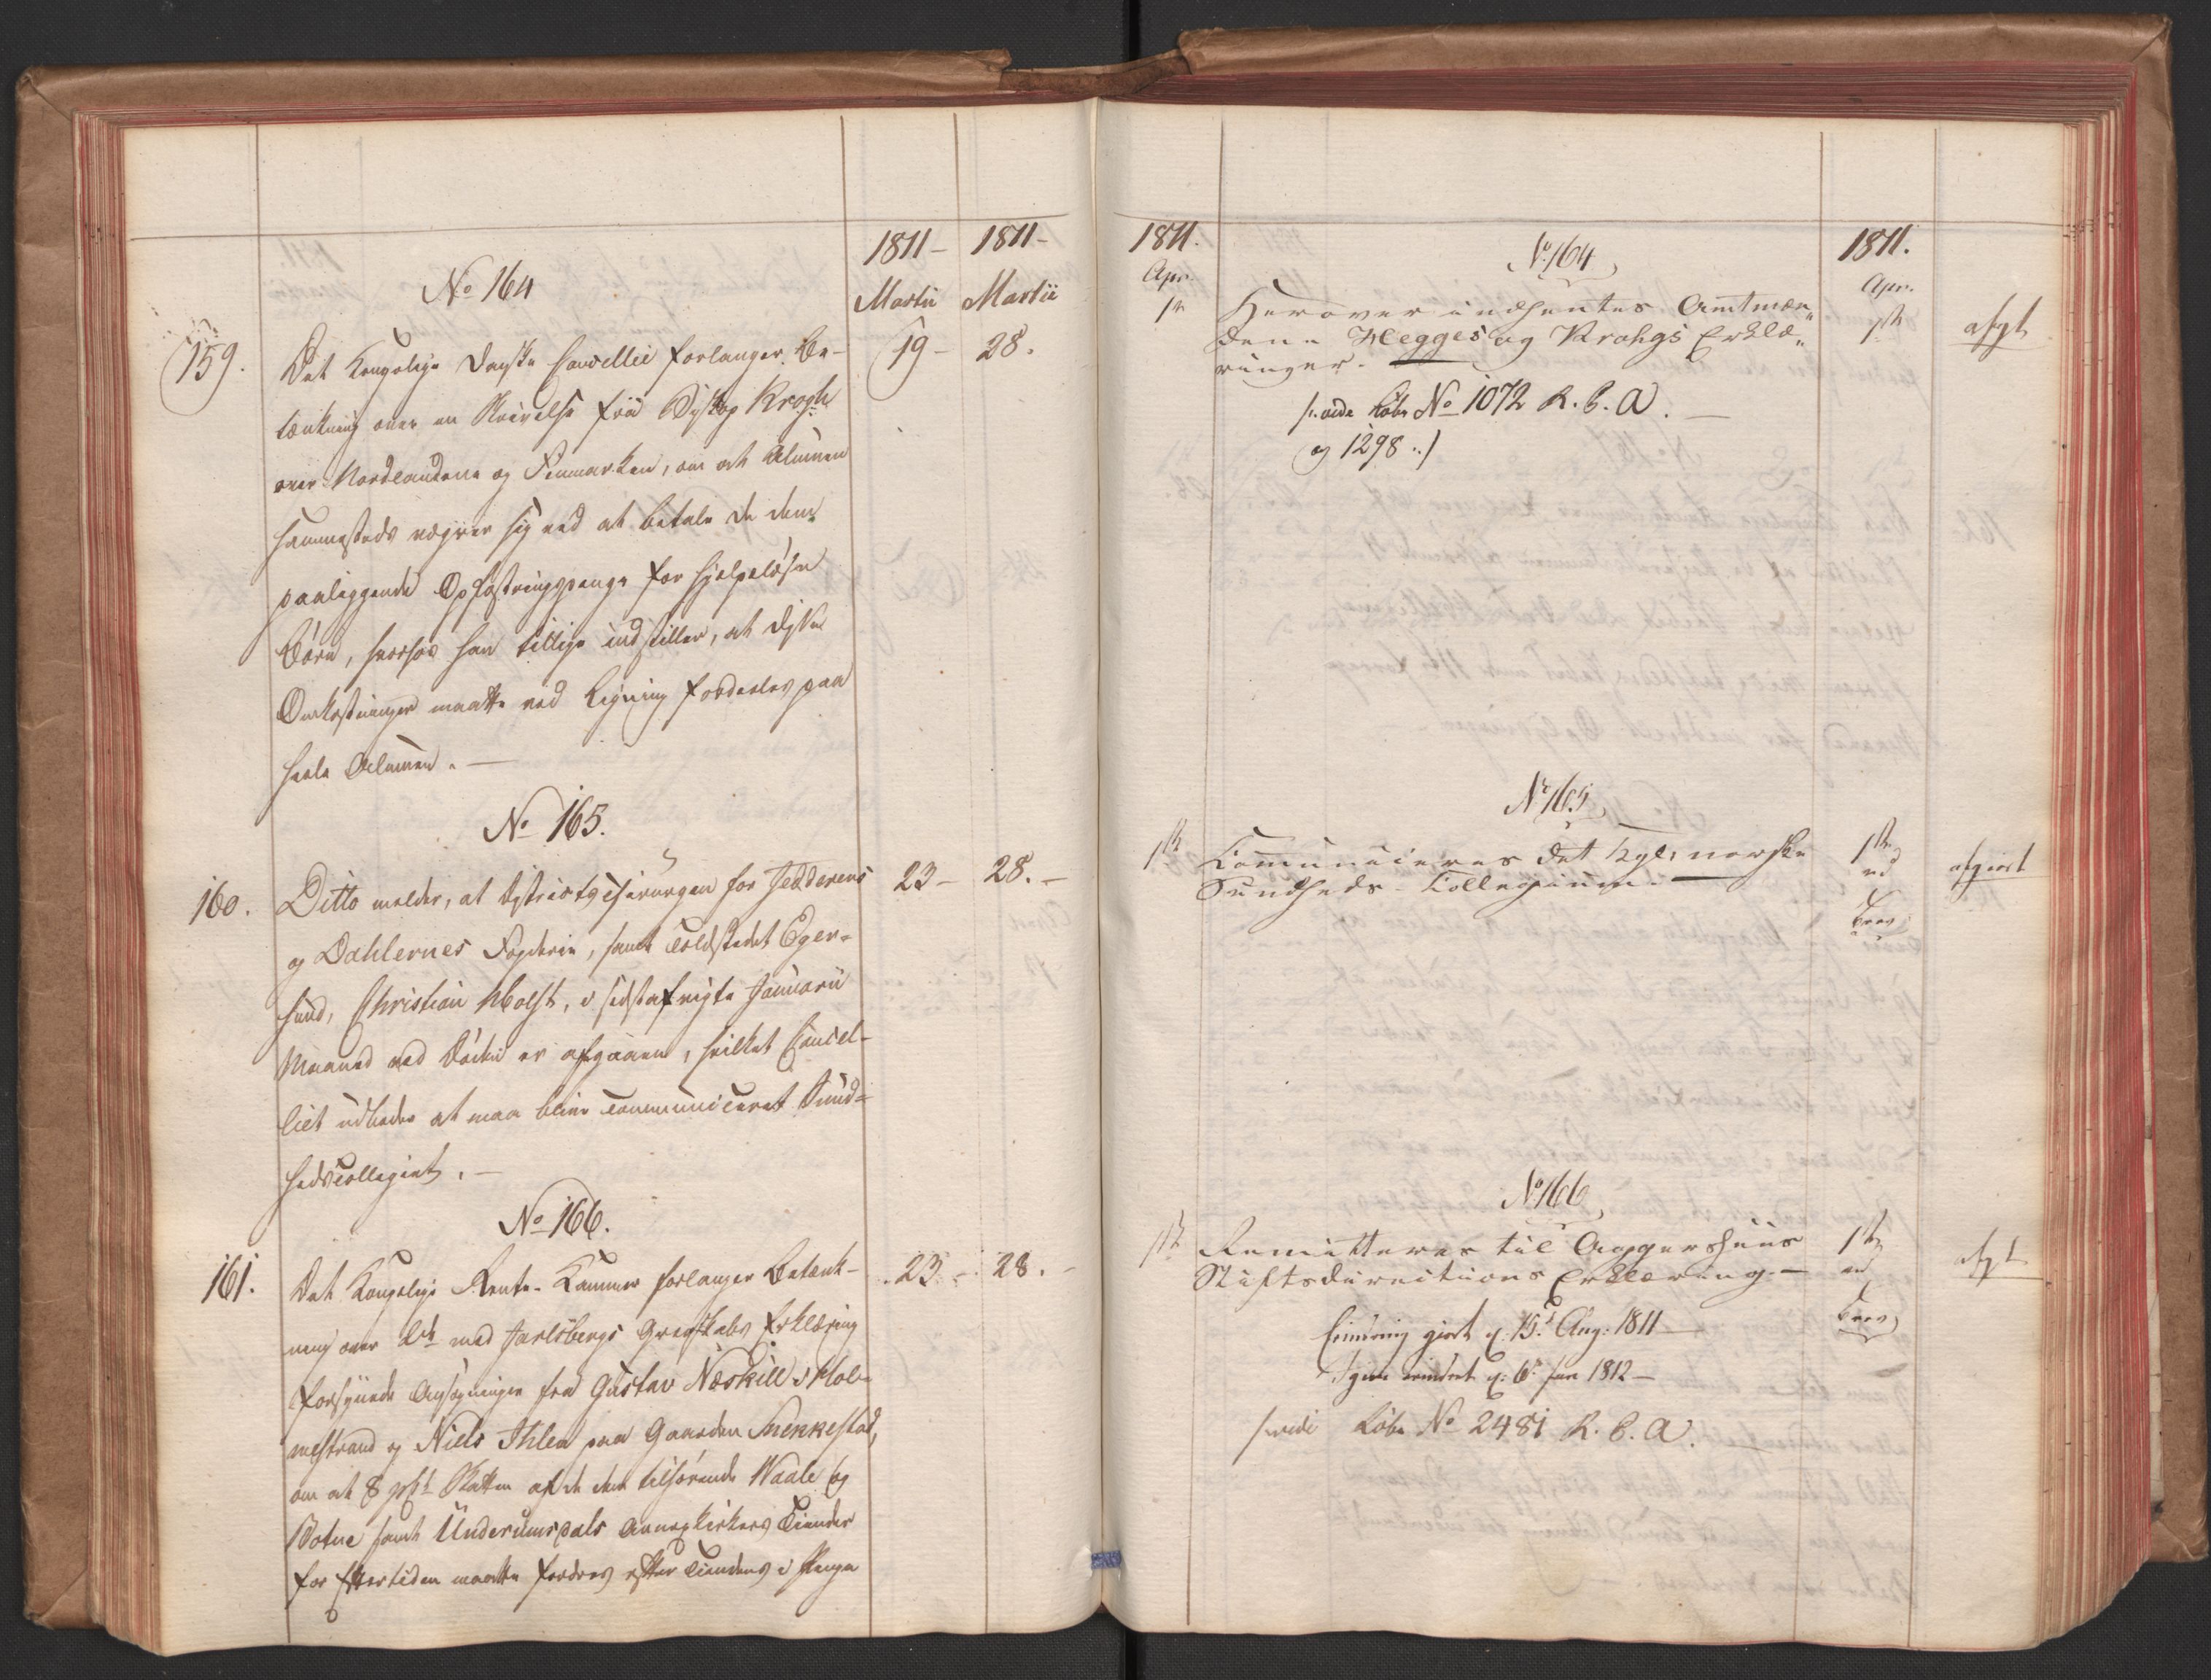 1811 - 1811 -
No 164
Martii Martii
159. Det Kongelige Danske Cancellie forlanger Be- 19 - 28.
tænkning over en Skrivelse fra Biskop Krogh
over Nordlandene og Finmarken, om at Almuen
sammesteds vægrer sig ved at betale de dem
paaliggende Opfostringspenge for hjelpeløse
Børn, hvorfor han tillige indstiller, at disse
Omkostninger maatte ved Ligning fordeles paa
heele Almuen. -
No 165.
160. Ditto melder, at Districtschirurgen for Jedderens 23 - 28. -
og Dahlernes Fogderie, samt Toldstedet Eger-
sund, Christian Holst, i sidstafvigte Januarii
Maaned ved Døden er afgaaen, hvilket Cancel-
liet udbeder at maa blive communiceret Sund-
hedscollegiet. -
No 166.
161. Det Kongelige Rente-Kammer forlanger Betænk- 23 - 28. -
ning over 2de med Jarlsbergs Grevskabs Erklæring
forsynede Ansøgninger fra Gustav Næskill i Hol-
mestrand og Niels Ihlen paa Gaarden Snekkestad,
om at 8 Skatten af de dem tilhørende Waale og
Botne samt Underumsdals Annexkirkers Tiender
for Eftertiden maatte fordres efter Tiendens i Penge
1811. No 164 1811.
Apr. Apr.
1ste Herover indhentes Amtmæn- 1ste afgt
dene Hegges og Krohgs Erklæ-
ringer. -
/: vide Løbe No 1072 R. C. A. -
og 1298 :/
No 165
1ste Communiceres det Kgl: norske 1ste afgiort
Sundheds-Collegium. - ved
Brev
No 166
1ste Remitteres til Aggershuus 1ste afgt
Stiftsdirections Erklæring. - ved
Brev
Erindring giort d: 15de Aug: 1811 -
Igien erindret d: 6te Jan 1812 -
/: vide Løbe No 2481 R. C. A. -